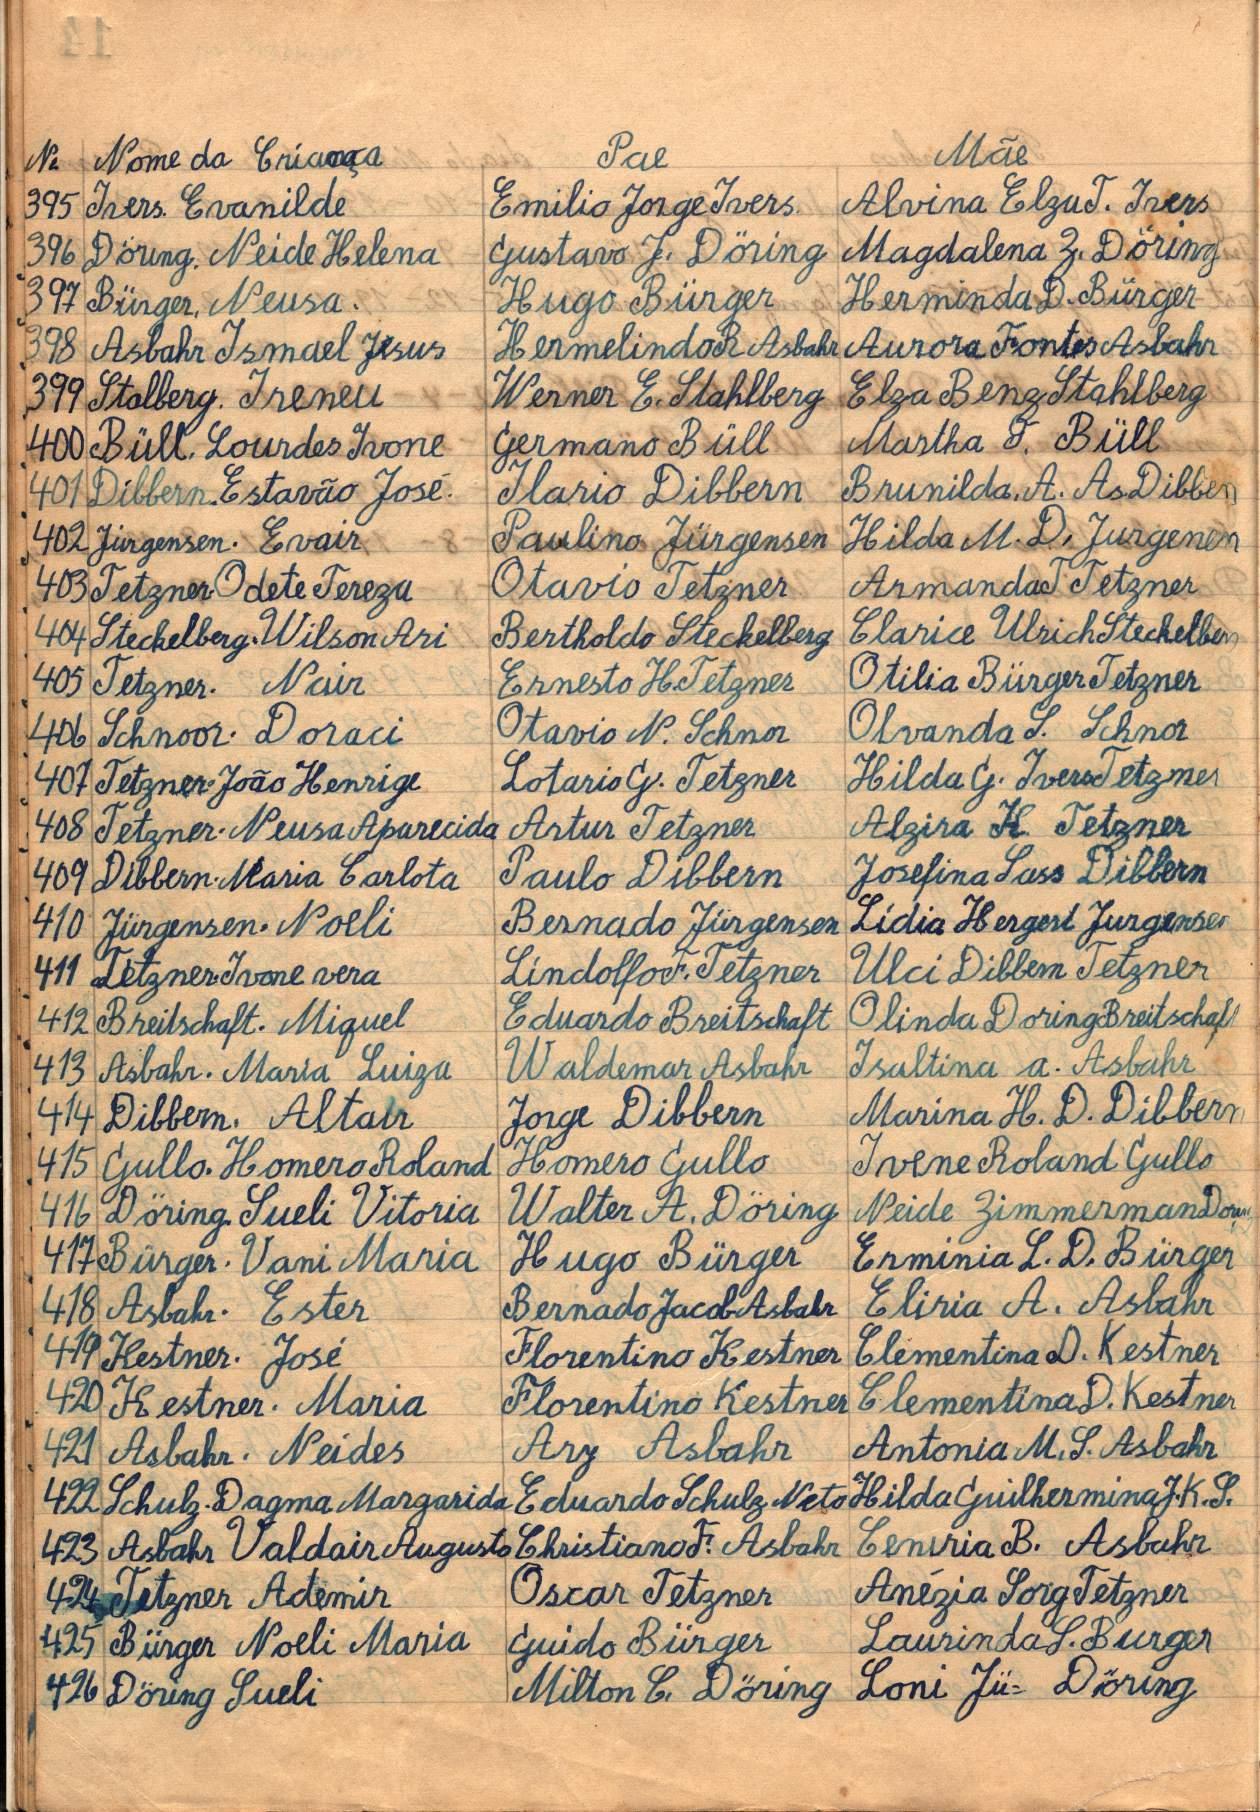 Nº Nome da Criança Pae Mãe
395 Ivers. Evanilde Emilio Jorge Ivers. Alvina Elza T. Ivers
396 Döring. Neide Helena Gustavo J. Döring Magdalena Z. Döring
397 Bürger, Neusa. Hugo Bürger Herminda D. Bürger
398 Asbahr Ismael Jesus Hermelindo R Asbahr Aurora Fontes Asbahr
399 Stalberg. Ireneu Werner E. Stahlberg Elza Benz Stahlberg
400 Büll. Lourdes Ivone Germano Büll Martha F. Büll
401 Dibbern. Estavão José. Ilario Dibbern Brunilda. A. As Dibbern
402 Jürgensen. Evair Paulino Jürgensen Hilda M. D. Jurgenen
403 Tetzner. Odete Tereza Otavio Tetzner Armanda T Tetzner
404 Steckelberg. Wilson Ari Bertholdo Steckelberg Clarice Ulrich Steckelberg
405 Tetzner. Nair Ernesto H. Tetzner Otilia Bürger Tetzner
406 Schnoor. Doraci Otavio N. Schnor Olvanda S. Schnor
407 Tetzner. João Henrige Lotario G. Tetzner Hilda G. Ivers Tetzner
408 Tetzner. Neusa Aparecida Artur Tetzner Alzira K. Tetzner
409 Dibbern. Maria Carlota Paulo Dibbern Josefina Lass Dibbern
410 Jürgensen. Noeli Bernado Jürgensen Lídia Hergert Jurgensen
411 Tetzner. Ivone vera Lindolfo F. Tetzner Ulci Dibbern Tetzner
412 Breitschaft. Miguel Eduardo Breitschaft Olinda Doring Breitschaft
413 Asbahr. Maria Luiza Waldemar Asbahr Isaltina a. Asbahr
414 Dibbern. Altair Jorge Dibbern Marina H. D. Dibbern
415 Gullo. Homero Roland Homero Gullo Ivene Roland Gullo
416 Döring. Sueli Vitoria Walter A. Döring Neide Zimmerman
417 Bürger. Vani Maria Hugo Bürger Erminia L. D. Bürger
418 Asbahr. Ester Bernado Jacob Asbahr Eliria A. Asbahr
419 Kestner. José Florentino Kestner Clementina D. Kestner
420 Kestner. Maria Florentino Kestner Clementina D. Kestner
421 Asbahr. Neides Ary Asbahr Antonia M. S. Asbahr
422 Schulz. Dagma Margarida Eduardo Schulz Neto Hilda Guilhermina J. K. S.
423 Asbahr Valdair Augusto Christiano F. Asbahr B. Asbahr
424 Tetzner Ademir Oscar Tetzner Anézia Sorg Tetzner
425 Bürger Noeli Maria Guido Bürger Laurinda S. Burger
426 Döring Sueli Milton C. Döring Loni Jü= Döring